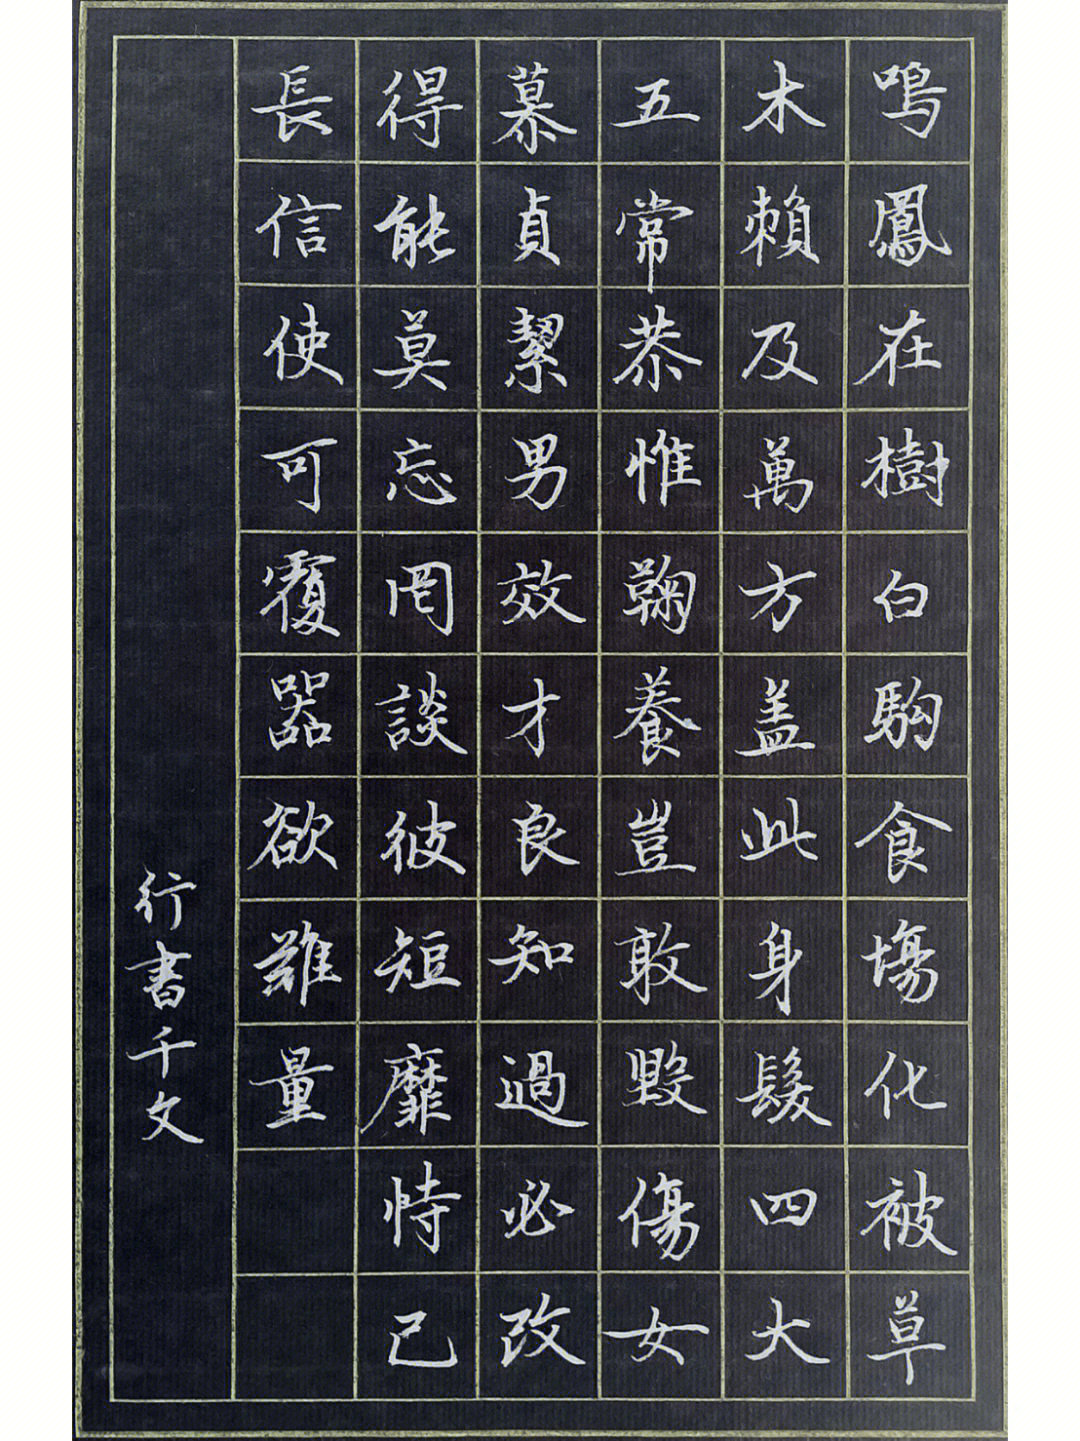 鳴鳳在樹白駒食場化被草
木賴及萬方盖此身髮四大
五常恭惟鞠養豈敢毀傷女
慕貞絜男效才良知過必改
得能莫忘罔談彼短靡恃己
長信使可覆器欲難量
行書千文